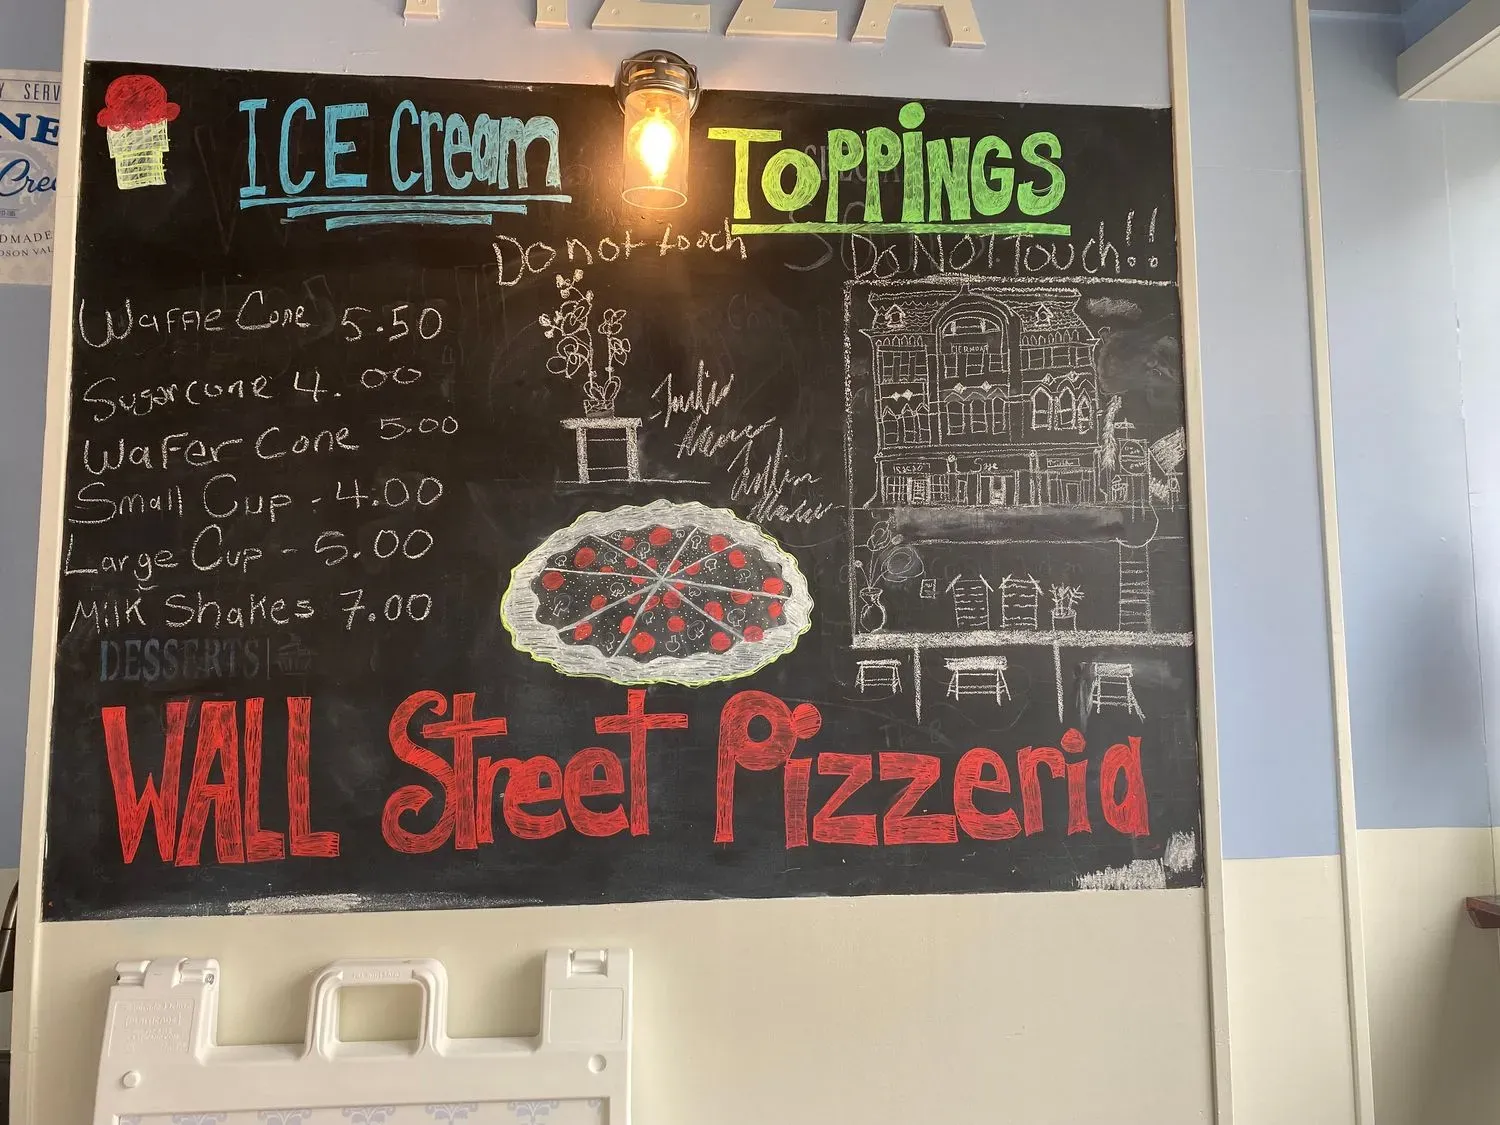 PIZZA
Y SERV
NE
Cre
DMADE
DSON VAL
ICE Cream
TOPPiNGS
Do not touch
Do NOT Touch!!
Waffle Cone 5.50
Sugar cone 4.00
Wafer Cone 5.00
Small Cup - 4.00
Large Cup - 5.00
Milk Shakes 7.00
DESSERTS
WALL Street Pizzeria